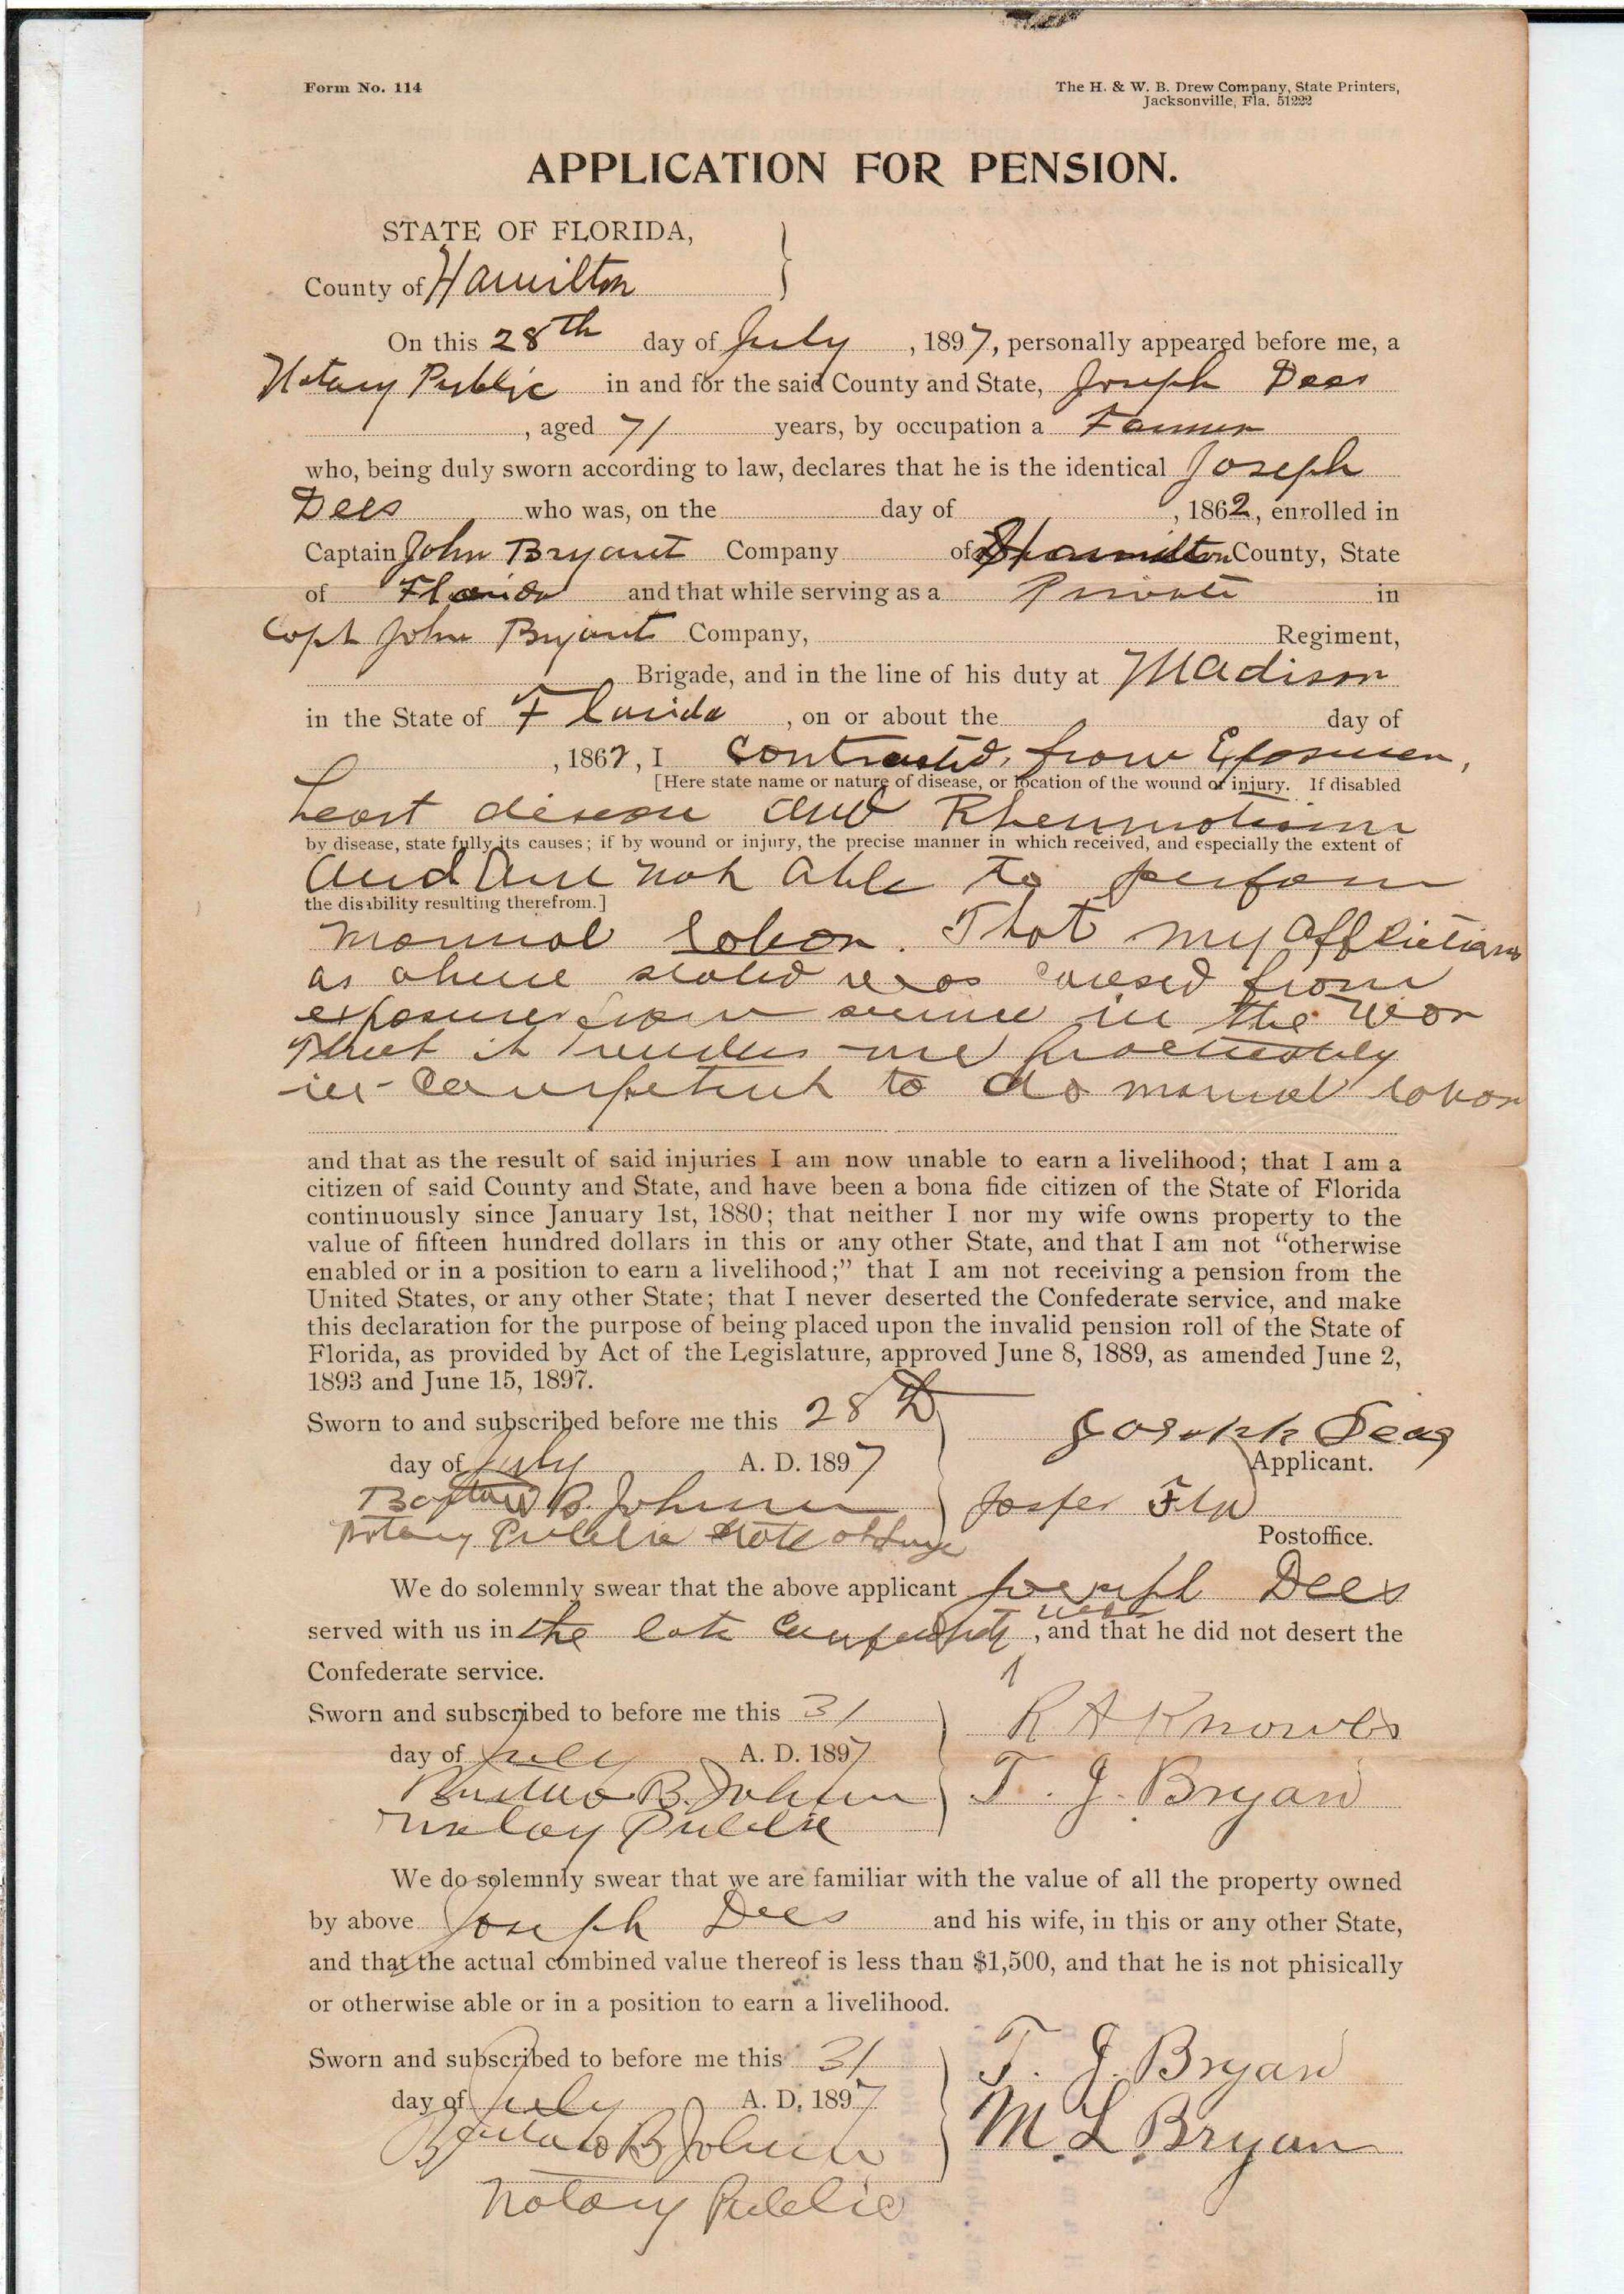 Form No. 114
The H. & W. B. Drew Company, State Printers,
Jacksonville, Fla. 51222
APPLICATION FOR PENSION.
STATE OF FLORIDA,
County of Hamilton
On this 28th day of July , 1897, personally appeared before me, a
Notary Public in and for the said County and State, Joseph Dees
, aged 71 years, by occupation a Farmer
who, being duly sworn according to law, declares that he is the identical Joseph
Dees who was, on the day of , 1862, enrolled in
Captain John Bryant Company of Hamilton County, State
of Florida and that while serving as a Private in
Capt John Bryant Company, Regiment,
Brigade, and in the line of his duty at Madison
in the State of Florida , on or about the day of
, 1862, I Contracted, from
[Here state name or nature of disease, or location of the wound or injury. If disabled
heart and Rheumatism
by disease, state fully its causes; if by wound or injury, the precise manner in which received, and especially the extent of
and am not able to perform
the disability resulting therefrom.]
manual labor. That my afflictions
as above stated was caused from
exposure service in the War
that it renders me
in-competent to do manual labor
and that as the result of said injuries I am now unable to earn a livelihood; that I am a
citizen of said County and State, and have been a bona fide citizen of the State of Florida
continuously since January 1st, 1880; that neither I nor my wife owns property to the
value of fifteen hundred dollars in this or any other State, and that I am not “otherwise
enabled or in a position to earn a livelihood;” that I am not receiving a pension from the
United States, or any other State; that I never deserted the Confederate service, and make
this declaration for the purpose of being placed upon the invalid pension roll of the State of
Florida, as provided by Act of the Legislature, approved June 8, 1889, as amended June 2,
1893 and June 15, 1897.
Sworn to and subscribed before me this 28th
Joseph Deas
day of July A. D. 1897
Applicant.
B. Johnson Jasper Fla
Notary Public State at Large
Postoffice.
We do solemnly swear that the above applicant Joseph Dees
served with us in the late war , and that he did not desert the
Confederate service.
Sworn and subscribed to before me this 31
R A Knowles
day of July A. D. 1897
B. Johnson T. J. Bryan
Notary Public
We do solemnly swear that we are familiar with the value of all the property owned
by above Joseph Dees and his wife, in this or any other State,
and that the actual combined value thereof is less than $1,500, and that he is not phisically
or otherwise able or in a position to earn a livelihood.
Sworn and subscribed to before me this 31
T. J. Bryan
day of July A. D. 1897
B Johnson M. L. Bryan
Notary Public